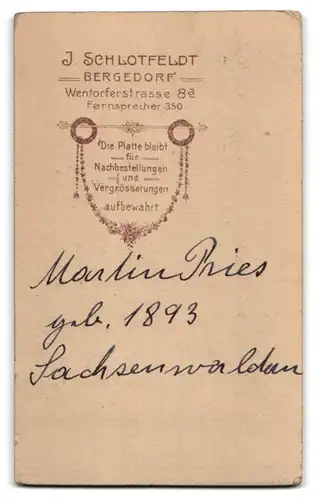 J. SCHLOTFELDT
BERGEDORF
Wentorferstrasse 8a
Fernsprecher 350
Die Platte bleibt
für
Nachbestellungen
und
Vergrösserungen
aufbewahrt.
Martin Pries
geb. 1893
Sachsenwaldau